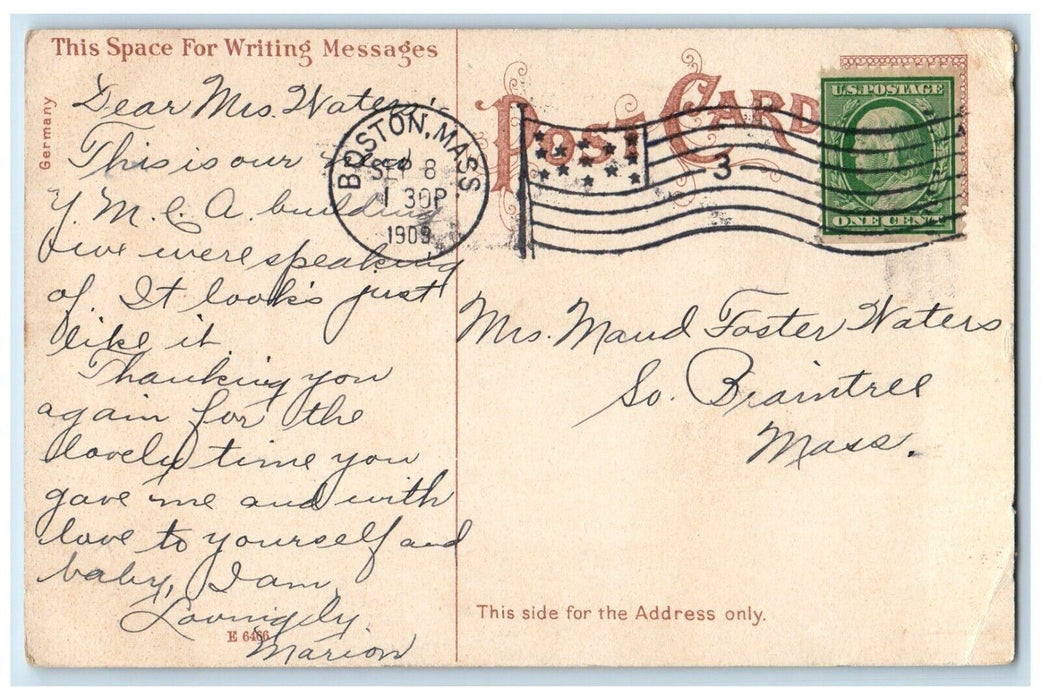 This Space For Writing Messages
Germany
Dear Mrs. Waters,
This is our
Y. M. C. A. building
we were speaking
of. It looks just
like it
Thanking you
again for the
lovely time you
gave me and with
love to yourself and
baby, I am,
Lovingly
Marion
E 6466
POST CARD
BOSTON, MASS.
SEP 8
1 30P
1909
3
U.S. POSTAGE
ONE CENT
Mrs. Maud Foster Waters
So. Braintree
Mass.
This side for the Address only.